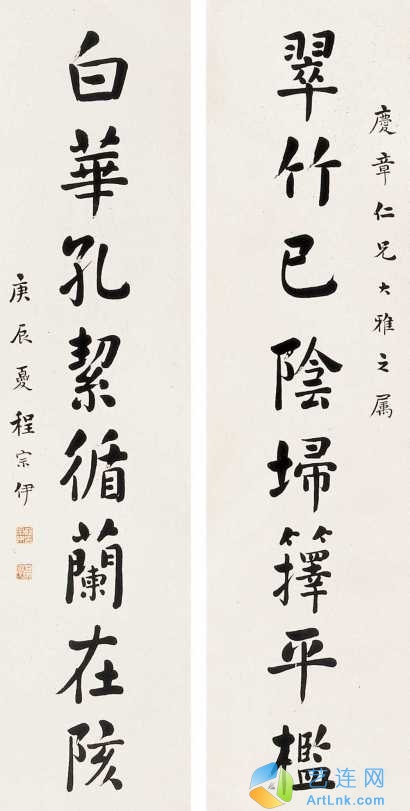 慶章仁兄大雅之属
翠竹已陰埽籜平檻
白華孔絜循蘭在陔
庚辰夏程宗伊
艺连网
ArtLnk.com